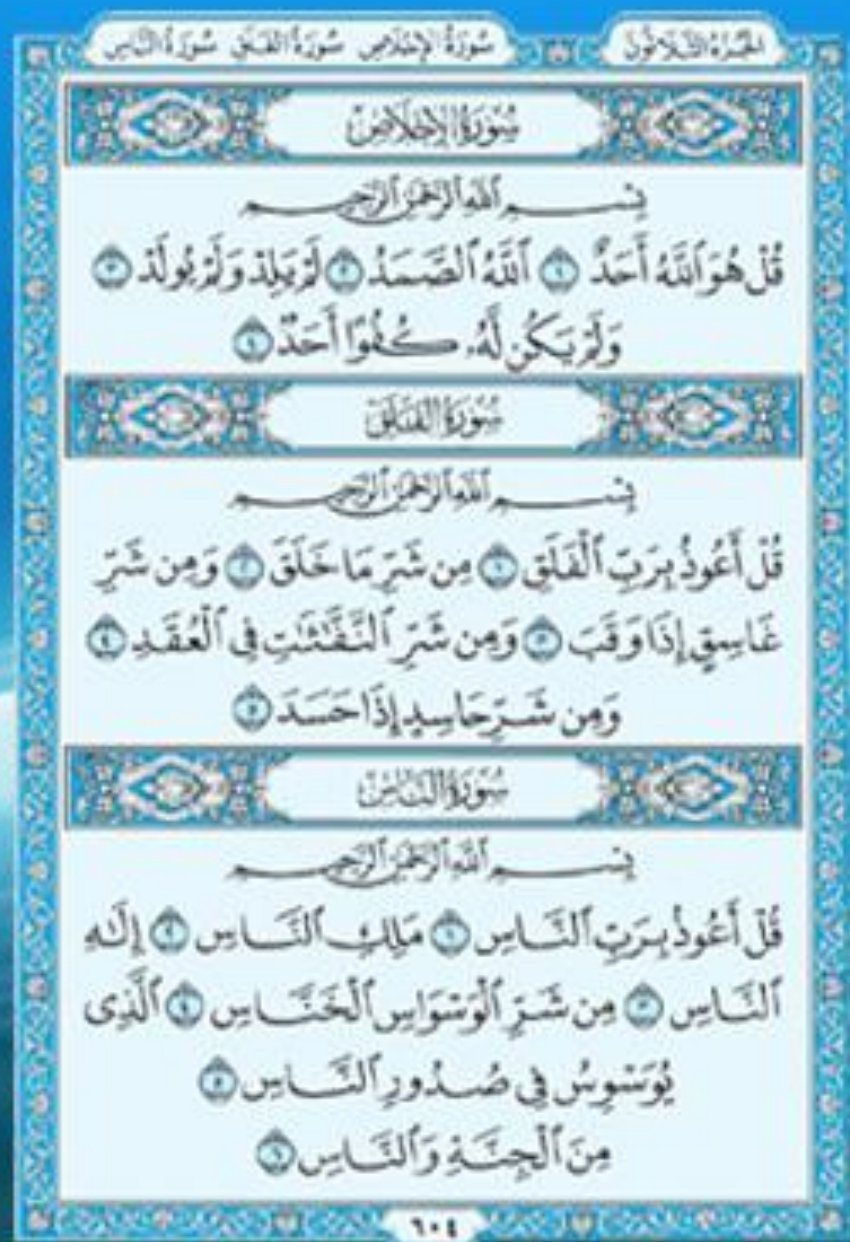 الجزء الثلاثون
سورة الإخلاص سورة الفلق سورة الناس
سُورَةُ الإِخْلَاصِ
بِسْمِ ٱللَّهِ ٱلرَّحْمَٰنِ ٱلرَّحِيمِ
قُلْ هُوَ ٱللَّهُ أَحَدٌ ١ ٱللَّهُ ٱلصَّمَدُ ٢ لَمْ يَلِدْ وَلَمْ يُولَدْ ٣
وَلَمْ يَكُن لَّهُۥ كُفُوًا أَحَدٌۢ ٤
سُورَةُ الفَلَقِ
بِسْمِ ٱللَّهِ ٱلرَّحْمَٰنِ ٱلرَّحِيمِ
قُلْ أَعُوذُ بِرَبِّ ٱلْفَلَقِ ١ مِن شَرِّ مَا خَلَقَ ٢ وَمِن شَرِّ
غَاسِقٍ إِذَا وَقَبَ ٣ وَمِن شَرِّ ٱلنَّفَّٰثَٰتِ فِى ٱلْعُقَدِ ٤
وَمِن شَرِّ حَاسِدٍ إِذَا حَسَدَ ٥
سُورَةُ النَّاسِ
بِسْمِ ٱللَّهِ ٱلرَّحْمَٰنِ ٱلرَّحِيمِ
قُلْ أَعُوذُ بِرَبِّ ٱلنَّاسِ ١ مَلِكِ ٱلنَّاسِ ٢ إِلَٰهِ
ٱلنَّاسِ ٣ مِن شَرِّ ٱلْوَسْوَاسِ ٱلْخَنَّاسِ ٤ ٱلَّذِى
يُوَسْوِسُ فِى صُدُورِ ٱلنَّاسِ ٥
مِنَ ٱلْجِنَّةِ وَٱلنَّاسِ ٦
٦٠٤